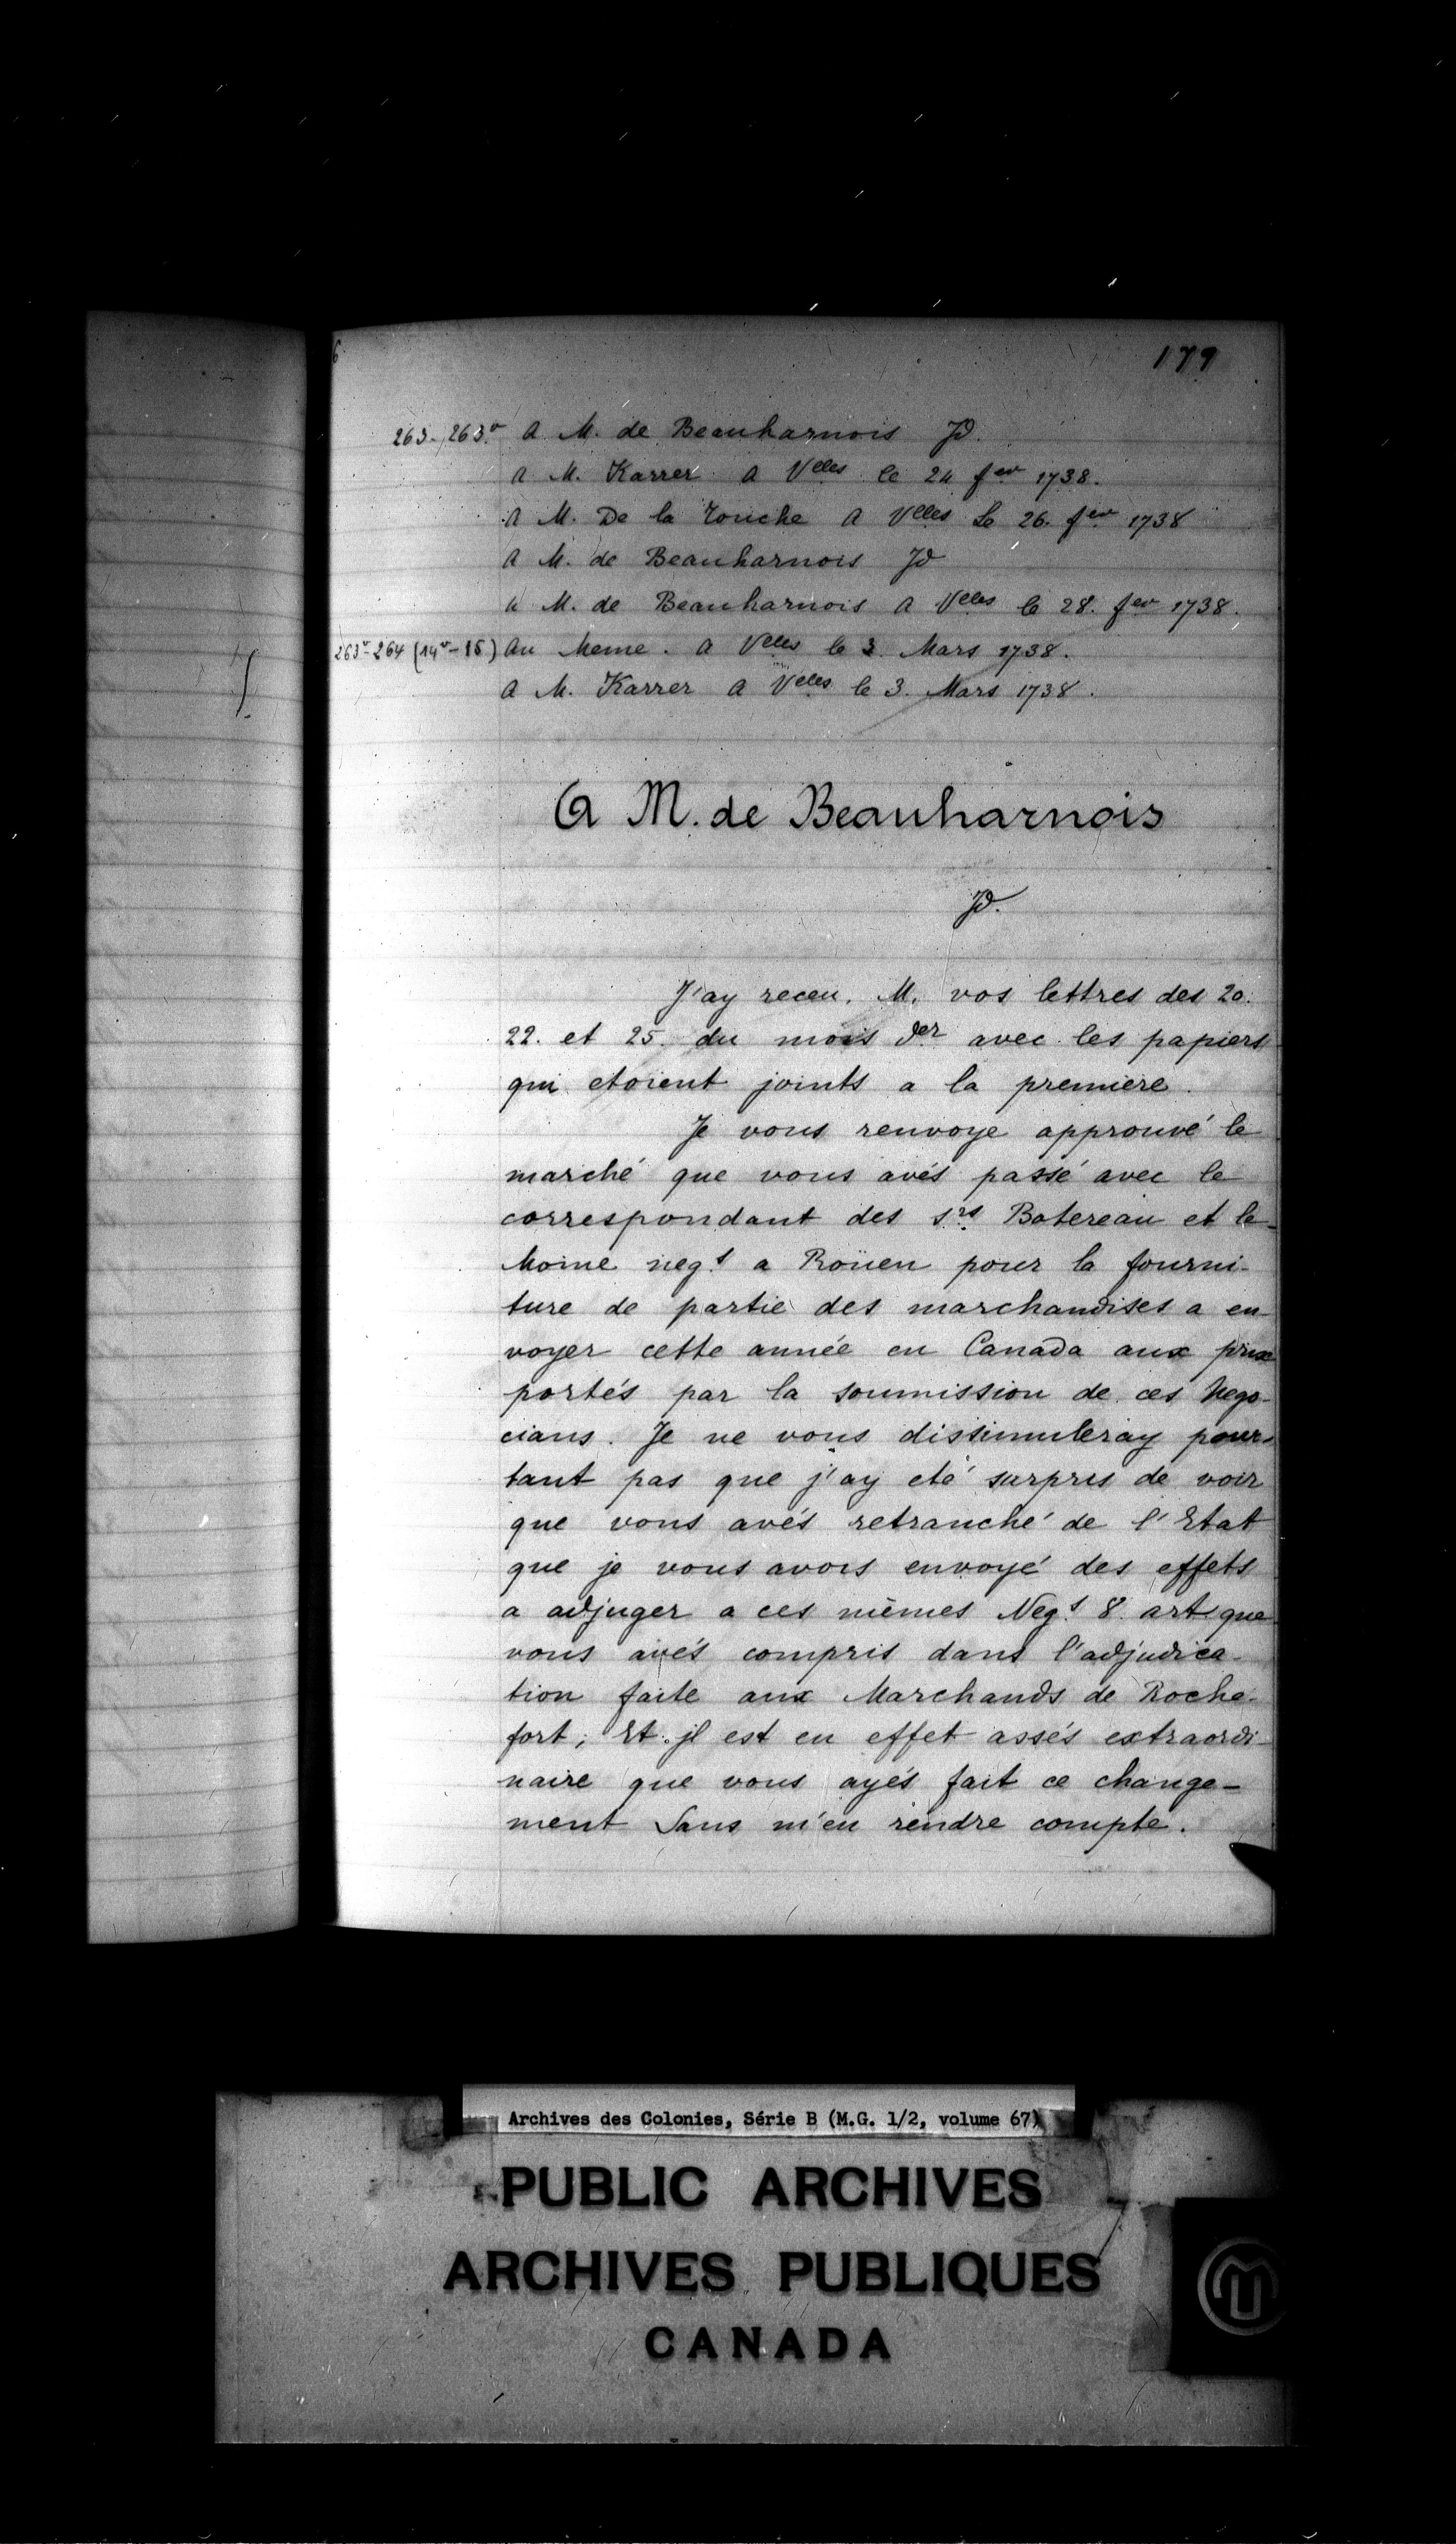 179
263-263v A M. de Beauharnois Jd.
A M. Karrer A Velles le 24 fev 1738.
A M. De la Touche A Velles Le 26. fev 1738
A M. de Beauharnois Jd
A M. de Beauharnois A Velles le 28. fev 1738.
263v-264 (14v-15) Au Meme. A Velles le 3 Mars 1738.
A M. Karrer A Velles le 3. Mars 1738.
A M. de Beauharnois
Jd.
J'ay receu. M. vos lettres des 20.
22. et 25. du mois der avec les papiers
qui etoient joints a la premiere.
Je vous renvoye approuvé le
marché que vous avés passé avec le
correspondant des srs Botereau et le
Moine negt a Roüen pour la fourni-
ture de partie des marchandises a en-
voyer cette année en Canada aux prix
portés par la soumission de ces Nego-
cians. Je ne vous dissimuleray pour-
tant pas que j'ay eté surpris de voir
que vous avés retranché de l'Etat
que je vous avois envoyé des effets
a adjuger a ces mêmes Negt 8. art que
vous avés compris dans l'adjudica-
tion faite aux Marchands de Roche-
fort; Et jl est en effet assés extraordi-
naire que vous ayés fait ce change-
ment Sans m'en rendre compte.
Archives des Colonies, Série B (M.G. 1/2, volume 67)
PUBLIC ARCHIVES
ARCHIVES PUBLIQUES
CANADA